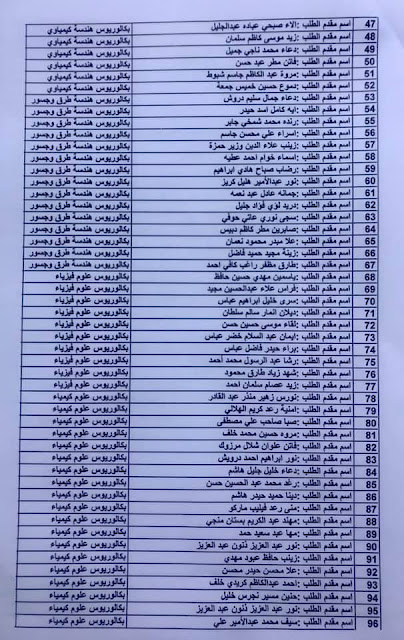 47 اسم مقدم الطلب :الاء صبحي عياده عبدالجليل بكالوريوس هندسة كيمياوي
48 اسم مقدم الطلب :زيد موسى كاظم سلمان بكالوريوس هندسة كيمياوي
49 اسم مقدم الطلب :دعاء محمد ناجي جميل بكالوريوس هندسة كيمياوي
50 اسم مقدم الطلب :فاتن مطر عبد حسن بكالوريوس هندسة كيمياوي
51 اسم مقدم الطلب :مروة عبد الكاظم جاسم شبوط بكالوريوس هندسة كيمياوي
52 اسم مقدم الطلب :دموع حسين خميس جمعة بكالوريوس هندسة كيمياوي
53 اسم مقدم الطلب :دعاء جمال سليم درويش بكالوريوس هندسة طرق وجسور
54 اسم مقدم الطلب :ايه كامل اسد حيدر بكالوريوس هندسة طرق وجسور
55 اسم مقدم الطلب :رنده محمد شمخي جابر بكالوريوس هندسة طرق وجسور
56 اسم مقدم الطلب :اسراء علي محسن جاسم بكالوريوس هندسة طرق وجسور
57 اسم مقدم الطلب :زينب علاء الدين وزير حمزة بكالوريوس هندسة طرق وجسور
58 اسم مقدم الطلب :اسماء خوام احمد عطيه بكالوريوس هندسة طرق وجسور
59 اسم مقدم الطلب :رضاب صباح هادي ابراهيم بكالوريوس هندسة طرق وجسور
60 اسم مقدم الطلب :نور عبدالأمير هليل كريز بكالوريوس هندسة طرق وجسور
61 اسم مقدم الطلب :جمانه عادل عبد نعمه بكالوريوس هندسة طرق وجسور
62 اسم مقدم الطلب :دريد لؤي فؤاد جليل بكالوريوس هندسة طرق وجسور
63 اسم مقدم الطلب :سجى نوري عاتي حوفي بكالوريوس هندسة طرق وجسور
64 اسم مقدم الطلب :صابرين مطر كاظم دبيس بكالوريوس هندسة طرق وجسور
65 اسم مقدم الطلب :علا مبدر محمود نعمان بكالوريوس هندسة طرق وجسور
66 اسم مقدم الطلب :زينة مجيد حميد فاضل بكالوريوس هندسة طرق وجسور
67 اسم مقدم الطلب :طارق مظفر راغب كافي احمد بكالوريوس هندسة طرق وجسور
68 اسم مقدم الطلب :ياسمين مهدي حسين حافظ بكالوريوس علوم فيزياء
69 اسم مقدم الطلب :فراس علاء عبدالحسين مجيد بكالوريوس علوم فيزياء
70 اسم مقدم الطلب :سرى خليل ابراهيم عباس بكالوريوس علوم فيزياء
71 اسم مقدم الطلب :ديلان انمار سالم سلطان بكالوريوس علوم فيزياء
72 اسم مقدم الطلب :لقاء موسى حسين حسن بكالوريوس علوم فيزياء
73 اسم مقدم الطلب :ايمان عبد السلام خضر عباس بكالوريوس علوم فيزياء
74 اسم مقدم الطلب :براء حيدر فاضل عباس بكالوريوس علوم فيزياء
75 اسم مقدم الطلب :رشا عبد الرسول محمد أحمد بكالوريوس علوم فيزياء
76 اسم مقدم الطلب :شهد زياد طارق محمود بكالوريوس علوم فيزياء
77 اسم مقدم الطلب :زيد عصام سلمان احمد بكالوريوس علوم فيزياء
78 اسم مقدم الطلب :نورس زهير منذر عبد القادر بكالوريوس علوم كيمياء
79 اسم مقدم الطلب :امنية رعد كريم الهلالي بكالوريوس علوم كيمياء
80 اسم مقدم الطلب :صبا صاحب علي مصطفى بكالوريوس علوم كيمياء
81 اسم مقدم الطلب :مروه حسين محمد خلف بكالوريوس علوم كيمياء
82 اسم مقدم الطلب :فاتن علوان شلال مرزوك بكالوريوس علوم كيمياء
83 اسم مقدم الطلب :نور ابراهيم احمد درويش بكالوريوس علوم كيمياء
84 اسم مقدم الطلب :دعاء خليل جليل هاشم بكالوريوس علوم كيمياء
85 اسم مقدم الطلب :رغد محمد عبد الحسين حسن بكالوريوس علوم كيمياء
86 اسم مقدم الطلب :دينا حميد حيدر هاشم بكالوريوس علوم كيمياء
87 اسم مقدم الطلب :منى رعد فيليب ماركو بكالوريوس علوم كيمياء
88 اسم مقدم الطلب :مهند عبد الكريم بستان منجي بكالوريوس علوم كيمياء
89 اسم مقدم الطلب :مها عبد سعيد حمد بكالوريوس علوم كيمياء
90 اسم مقدم الطلب :نور عبد العزيز ذنون عبد العزيز بكالوريوس علوم كيمياء
91 اسم مقدم الطلب :زينب حافظ عبود مهدي بكالوريوس علوم كيمياء
92 اسم مقدم الطلب :علا محسن حيدر محسن بكالوريوس علوم كيمياء
93 اسم مقدم الطلب :احمد عبدالكاظم كريدي خلف بكالوريوس علوم كيمياء
94 اسم مقدم الطلب :حنين مسير نجرس خليل بكالوريوس علوم كيمياء
95 اسم مقدم الطلب :نور عبد العزيز ذنون عبد العزيز بكالوريوس علوم كيمياء
96 اسم مقدم الطلب :سيف محمد عبدالأمير علي بكالوريوس علوم كيمياء